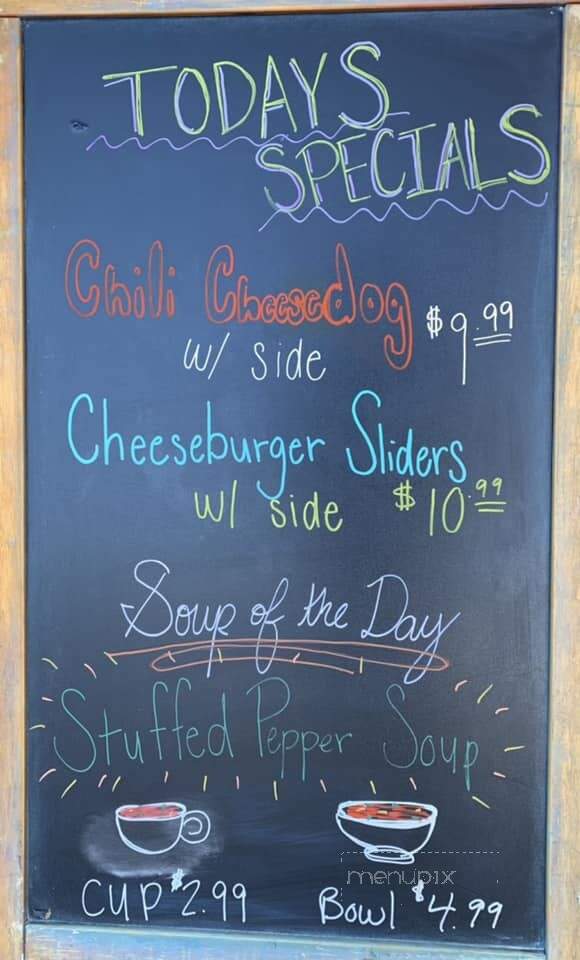 TODAYS
SPECIALS
Chili Cheesedog $9.99
w/ side
Cheeseburger Sliders
w/ side $10.99
Soup of the Day
Stuffed Pepper Soup
menupix
CUP $2.99 Bowl $4.99